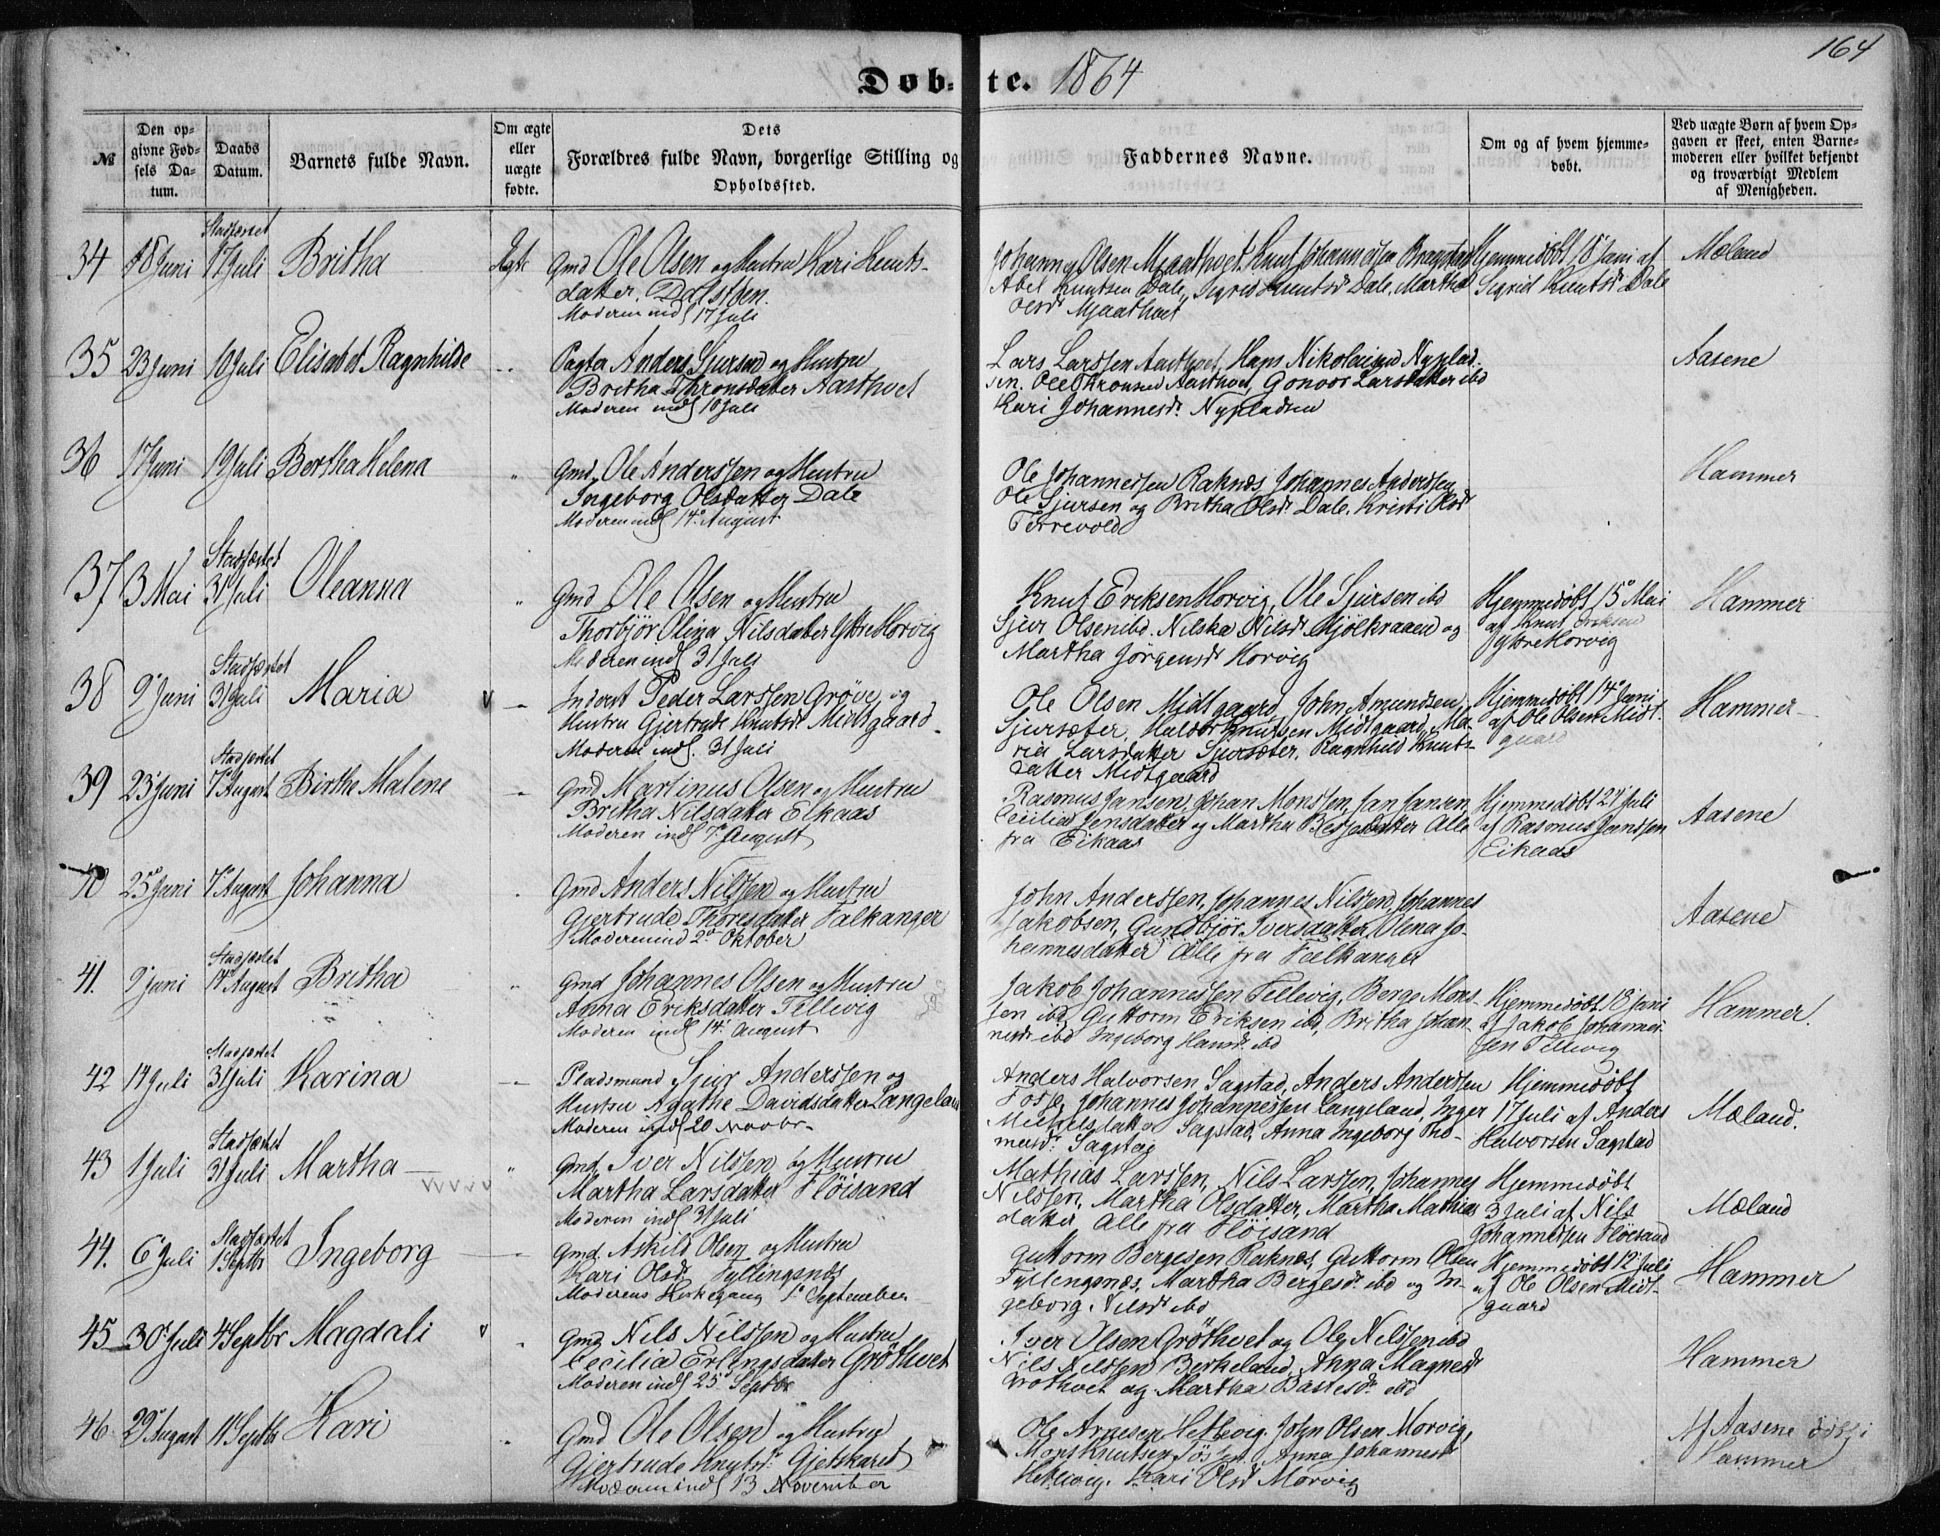 164
Døb-te. 1864
№
Den op-
givne Fød-
sels Da-
tum.
Daabs
Datum.
Barnets fulde Navn.
Om ægte
eller
uægte
fødte.
Dets
Forældres fulde Navn, borgerlige Stilling og
Opholdssted.
Faddernes Navne.
Om og af hvem hjemme-
døbt.
Ved uægte Børn af hvem Op-
gaven er skeet, enten Barne-
moderen eller hvilket bekjendt
og troværdigt Medlem
af Menigheden.
34 18 Juni Stadfæstet 17 Juli Britha Ægte
Gmd Ole Olsen og Hustru Kari Knuts-
datter. Dalsøen.
Moderen indl 17 Juli
Johannes Olsen Mjaathvet. Knut Johannesen
Abel Knutsen Dale, Sigrid Knutsdr Dale, Martha
Olsdr Mjaathvet
Hjemmedøbt 18 Juni af
Sigrid Knutsdr Dale
Mæland
35 23 Juni 10 Juli Elisabet Ragnhilde
Pagter Anders Sjursen og Hustru
Britha Thronsdatter Aasthvet
Moderen indl 10 Juli
Lars Larssen Aasthvet, Hans Nikolaisen Nyplad-
sen. Ole Thronsen Aasthvet, Gonvor Larsdatter ibd
Kari Johannesdr. Nypladsen
Aasene
36 17 Juni 19 Juli Bertha Helena "
Gmd. Ole Anderssen og Hustru
Ingeborg Olsdatter Dale
Moderen indl 14 August
Ole Johannessen Raknæs Johannes Anderssen
Ole Sjursen og Britha Olsdr Dale. Kristi Olsdr
Tørrevold
Hammer
37 3 Mai Stadfæstet 31 Juli Oleanna "
Gmd Ole Olsen og Hustru
Thorbjør Olina Nilsdatter Yttre Horvig
Moderen indl 31 Juli
Knut Eriksen Horvig, Ole Sjursen ibd
Sjur Olsen ibd. Nilska Nilsdr Mjølkraaen og
Martha Jørgensdr Horvig
Hjemmedøbt 15 Mai
af Knut Eriksen
Yttre Horvig
Hammer
38 9 Juni Stadfæstet 31 Juli Maria v —
Inderst Peder Larssen Grøve og
Hustru Gjertrude Knutsdr Midtgaard
Moderen indl. 31 Juli
Ole Olsen Midtgaard, John Amundsen
Sjursæter, Haldor Knutsen Midtgaard, Ma-
ria Larsdatter Sjursæter, Ragnhild Knuts-
datter Midtgaard
Hjemmedøbt 14 Juni
af Ole Olsen Midt-
gaard
Hammer
39 23 Juni Stadfæstet 7 August Birthe Malene —
Gmd Martinus Olsen og Hustru
Britha Nilsdatter Eikaas
Moderen indl 7 August
Rasmus Jansen, Johan Monssen, Jan Jansen
Cecilia Jensdatter og Martha Alle
fra Eikaas
Hjemmedøbt 24 Juli
af Rasmus Jansen
Eikaas
Aasene
40 25 Juni 7 August Johanna
Gmd Anders Nilssen og Hustru
Gjertrude Thoresdatter Falkanger
Moderen ind 2 Oktober
John Anderssen, Johannes Nilssen, Johannes
Jakobsen, Gundbjør Iversdatter, Olena Jo-
hannesdatter Alle fra Falkanger
Aasene
41. 9 Juni Stadfæstet 14 August Britha "
Gmd Johannes Olsen og Hustru
Anna Eriksdatter Tellevig
Moderen indl 14 August
Jakob Johannessen Tellevig, Berge Mons-
sen ibd, Guttorm Eriksen ibd, Britha Johan-
nesdr ibd Ingeborg Hansdr ibd
Hjemmedøbt 18 Juni
af Jakob Johannes-
sen Tellevig
Hammer.
42 14 Juli Stadfæstet 31 Juli Karina —
Pladsmand Sjur Anderssen og
Hustru Agathe Davidsdatter Langeland
Moderen indl 20 Novbr-
Anders Halvorsen Sagstad, Anders Anderssen
Fosse, Johannes Johannessen Langeland, Inger
Mickelsdatter Sagstad, Anna Ingeborg Tho-
mesdr. Sagstad
Hjemmedøbt
17 Juli af Anders
Halvorsen Sagstad
Mæland.
43 1 Juli Stadfæstet 31 Juli Martha — "
Gmd. Iver Nilssen og Hustru
Martha Larsdatter Fløisand
Moderen indl 31 Juli
Mathias Larssen, Nils Larssen, Johannes
Nilssen, Martha Olsdatter, Martha Mathias
datter Alle fra Fløisand
Hjemmedøbt
3 Juli af Nils
Johannessen Fløisand
Mæland
44. 6 Juli Stadfæstet 1 Septbr Ingeborg —
Gmd. Askild Olsen og Hustru
Kari Olsdr Fyllingsnæs
Moderens Kirkegang 1 September
Guttorm Bergesen Raknæs, Guttorm Olsen
Fyllingsnæs, Martha Bergesdr. ibd og In-
geborg Nilsdr ibd
Hjemmedøbt 12 Juli
af Ole Olsen Midt-
gaard
Hammer
45 30 Juli 4 Septbr Magdali v
Gmd Nils Nilssen og Hustru
Cecilia Erlingsdatter Grøthvet
Moderen indl 25 Septbr
Iver Olsen Grøthvet og Ole Nilssen ibd
Nils Nilssen Birkeland, Anna Magnesdr
Grøthvet og Martha Bastesdr. ibd
Hammer
46 29 August 11 Septbr Kari
Gmd Ole Olsen og Hustru
Gjertrude Knutsdr. Gjetskaret
Moderen indl 13 November
Ole Arnesen Hetlevig, John Olsen Morvig,
Mons Knutsen Anna Johannesdr
Hetlevig. Kari Olsdr Morvig
Af Aasene
Hammer